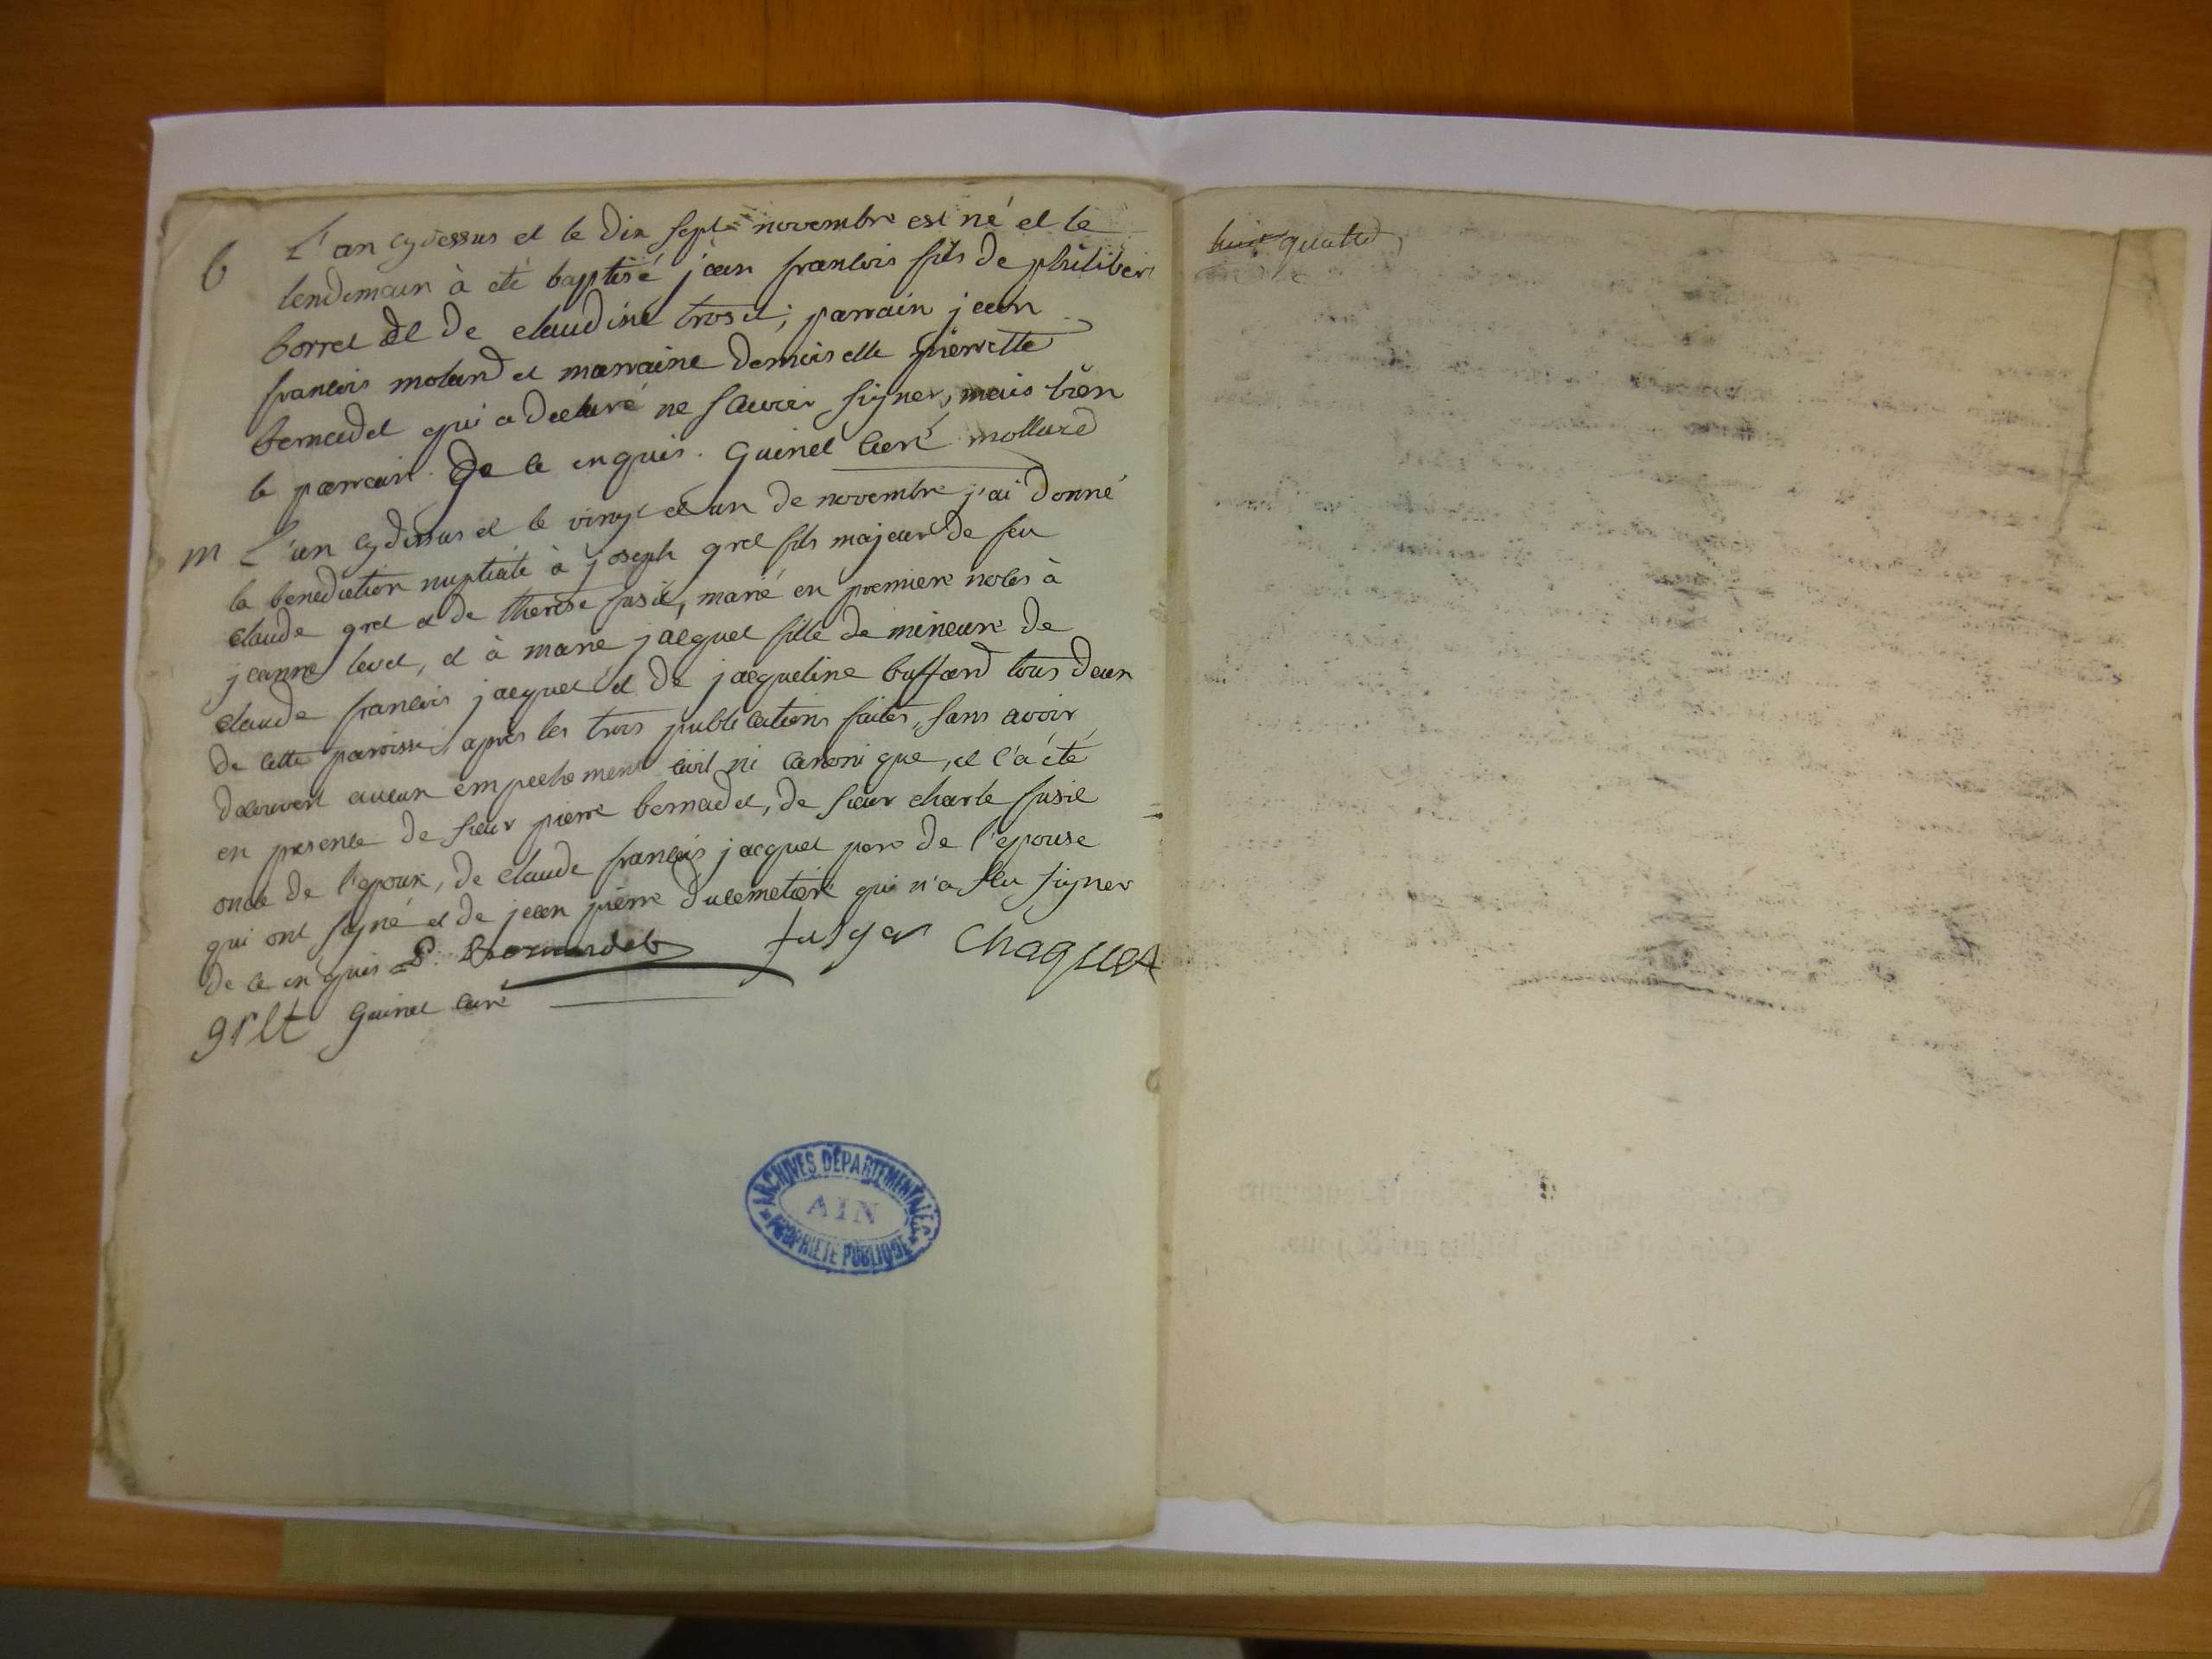 b L'an cydessus et le dix sept novembre est né et le
lendemain à eté baptisé jean francois fils de philiber
borret et de claudine troset; parrain jean
francois moland et marraine demoiselle pierrette
bernadet qui a declaré ne scavoir signer, mais bien
le parrain. De ce enquis. Guinet curé mollard
m L'an cydessus et le vingt et un de novembre j'ai donné
la benediction nuptiale à joseph gret fils majeur de feu
claude gret et de therese fusié, marié en premiere noces à
jeanne levet, et à marie jacquet fille de mineure de
claude francois jacquet et de jacqueline buffard tous deux
de cette paroisse, après les trois publications faites, sans avoir
decouvert aucun empechement civil ni canonique, et c'a été
en presence de sieur pierre bernadet, de sieur charle fusie
oncle de l'epoux, de claude francois jacquet pere de l'epouse
qui ont signé et de jean pierre ducemetiere qui n'a sçu signer
de ce enquis P. Bernardet fusyer Chaquet
grlt Guinet curé
quattre
ARCHIVES DÉPARTEMENTALES
AIN
PROPRIÉTÉ PUBLIQUE